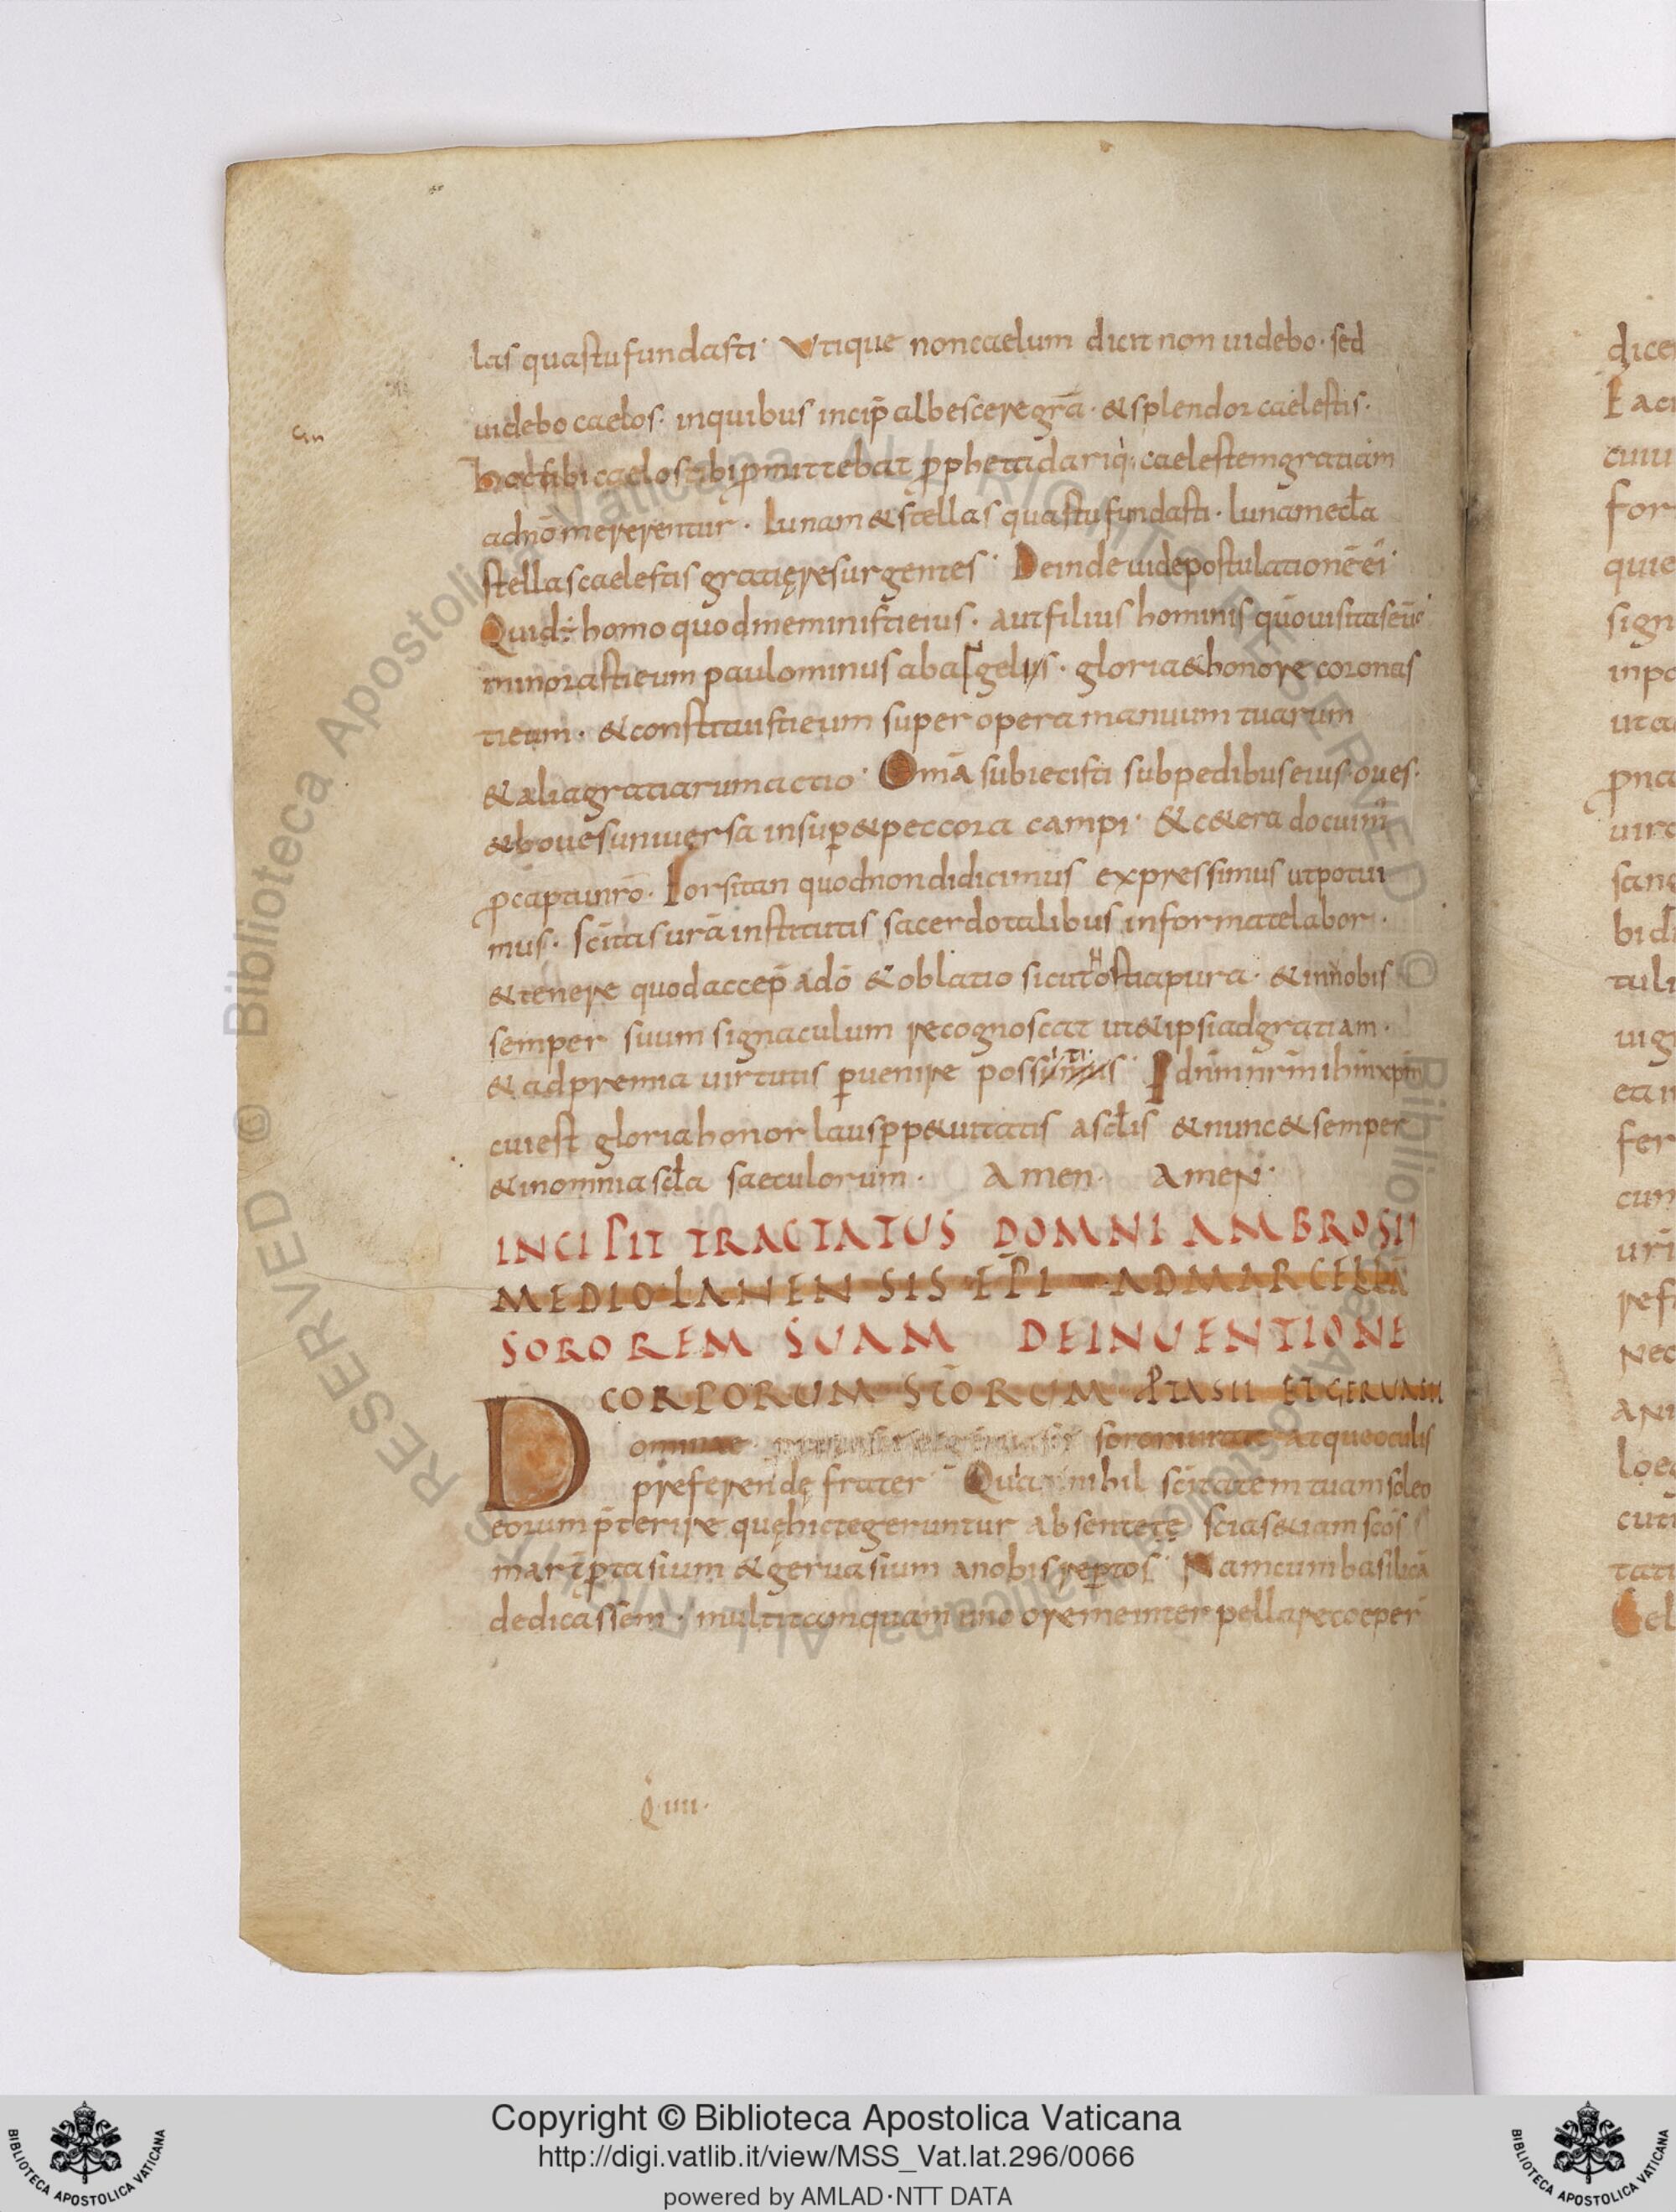 las quas tu fundasti· Utique non caelum dicit non uidebo· sed
uidebo caelos· in quibus incip̄ albescere grā· & splendor caelestis·
caelestem gratiam
Lunam & stellas quas tu fundasti· lunam
stellas caelestis gratię resurgentes· Deinde uide postulationē
Quid ÷ homo quod memínisti eius· aut filius hominis quō uisitas eū·
minorasti eum paulominus ab angelis· gloria & honore coronas
ti eum· & constituisti eum super opera manuum tuarum
& alia gratiarum actio· Omā subiecisti sub pedibus eius· oues·
& boues uniuersa insup̄ & peccora campi· & c&era docuim̄
ꝓ captu nrō· Forsitan quod non didicimus expressimus ut potui
mus· scītas urā institutis sacerdotalibus informata elabor&·
& tenere quod accep̄ a dō & oblatio sicut hostia pura· & in nobis
semper suum signaculum recognoscat ut & ipsi ad gratiam·
& ad premia uirtutis ꝑuenire possitis· P dn̄m nrm̄ ihm̄ xpm̄
cui est gloria honor laus ꝑp&uitatis a scl̄is & nunc & semper
& in omnia scl̄a saeculorum· Amen· Amen·
INCIPIT TRACTATUS DOMNI AMBROSII
MEDIOLANENSIS EP̄I AD MARCELLĀ
SOROREM SUAM DE INUENTIONE
CORPORUM SC̄ORUM PTASII ET GERUASII
Dominae atque oculis
preferendę frater· Quia nihil scītatem tuam soleo
eorum p̄terire quę hic te geruntur absente te scias &iam scōs
mar̄t ꝓtasium & geruasium a nobis reptos· Nam cum basilicā
dedicassem· multi tamquam uno ore me interpellare coeper̄
Q· IIII·
Copyright © Biblioteca Apostolica Vaticana
http://digi.vatlib.it/view/MSS_Vat.lat.296/0066
powered by AMLAD·NTT DATA
BIBLIOTECA APOSTOLICA VATICANA
BIBLIOTECA APOSTOLICA VATICANA